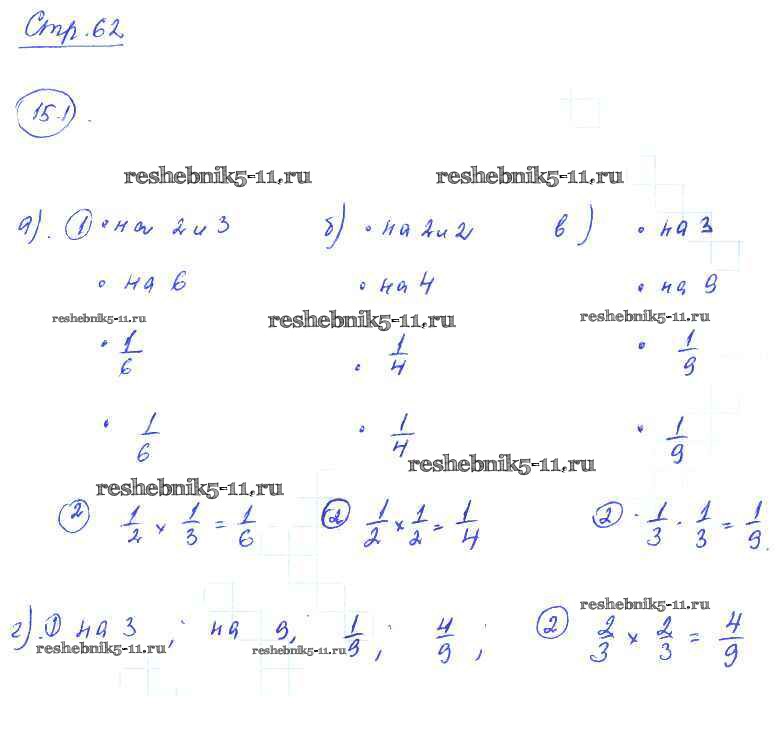 Стр. 62
15.1.
reshebnik5-11.ru reshebnik5-11.ru
а). ① • на 2 и 3 б) • на 2 и 2 в) • на 3
• на 6 • на 4 • на 9
reshebnik5-11.ru reshebnik5-11.ru reshebnik5-11.ru
• 1/6 • 1/4 • 1/9
• 1/6 • 1/4 • 1/9
reshebnik5-11.ru
reshebnik5-11.ru
② 1/2 × 1/3 = 1/6 ② 1/2 × 1/2 = 1/4 ② • 1/3 · 1/3 = 1/9.
reshebnik5-11.ru
г). ① на 3 ; на 9, 1/9 ; 4/9 ; ② 2/3 × 2/3 = 4/9
reshebnik5-11.ru reshebnik5-11.ru